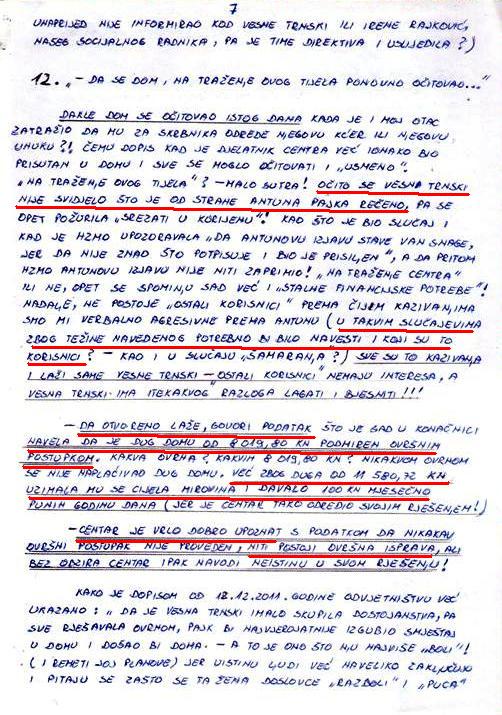 7
UNAPRIJED NIJE INFORMIRAO KOD VESNE TRNSKI ILI IRENE RAJKOVIĆ,
NAŠEG SOCIJALNOG RADNIKA, PA JE TIME DIREKTIVA I USLIJEDILA?)
12. „– DA SE DOM, NA TRAŽENJE OVOG TIJELA PONOVNO OČITOVAO..."
DAKLE DOM SE OČITOVAO ISTOG DANA KADA JE I MOJ OTAC
ZATRAŽIO DA MU ZA SKRBNIKA ODREDE NJEGOVU KĆER ILI NJEGOVU
UNUKU?! ČEMU DOPIS KAD JE DJELATNIK CENTRA VEĆ IONAKO BIO
PRISUTAN U DOMU I SVE SE MOGLO OČITOVATI I „USMENO".
„NA TRAŽENJE OVOG TIJELA"? – MALO SUTRA! OČITO SE VESNA TRNSKI
NIJE SVIDJELO ŠTO JE OD STRANE ANTUNA PAJKA REČENO, PA SE
OPET POŽURILA „SREZATI U KORIJENU"! KAO ŠTO JE BIO SLUČAJ I
KAD JE HZMO UPOZORAVALA „DA ANTUNOVU IZJAVU STAVE VAN SNAGE,
JER DA NIJE ZNAO ŠTO POTPISUJE I BIO JE PRISILJEN", A DA PRITOM
HZMO ANTUNOVU IZJAVU NIJE NITI ZAPRIMIO! „NA TRAŽENJE CENTRA"
ILI NE, OPET SE SPOMINJU SAD VEĆ I „STALNE FINANCIJSKE POTREBE"!
NADALJE, NE POSTOJE „OSTALI KORISNICI" PREMA ČIJEM KAZIVANJIMA
SMO MI VERBALNO AGRESIVNE PREMA ANTUNU (U TAKVIM SLUČAJEVIMA
ZBOG TEŽINE NAVEDENOG POTREBNO BI BILO NAVESTI I KOJI SU TO
KORISNICI? – KAO I U SLUČAJU „ŠAMARANJA"?) SVE SU TO KAZIVANJA
I LAŽI SAME VESNE TRNSKI – „OSTALI KORISNICI" NEMAJU INTERESA, A
VESNA TRNSKI IMA ITEKAKVOG RAZLOGA LAGATI I BJESNITI!!!
– DA OTVORENO LAŽE, GOVORI PODATAK ŠTO JE SAD U KONAČNICI
NAVELA DA JE DUG DOMU OD 8 019,80 KN PODMIREN OVRŠNIM
POSTUPKOM. KAKVA OVRHA? KAKVIH 8 019,80 KN? NIKAKVOM OVRHOM
SE NIJE NAPLAĆIVAO DUG DOMU, VEĆ ZBOG DUGA OD 11 580,72 KN
UZIMALA MU SE CIJELA MIROVINA I DAVALO 100 KN MJESEČNO
PUNIH GODINU DANA (JER JE CENTAR TAKO ODREDIO SVOJIM RJEŠENJEM!
– CENTAR JE VRLO DOBRO UPOZNAT S PODATKOM DA NIKAKAV
OVRŠNI POSTUPAK NIJE PROVEDEN, NITI POSTOJI OVRŠNA ISPRAVA, ALI
BEZ OBZIRA CENTAR IPAK NAVODI NEISTINU U SVOM RJEŠENJU!
KAKO JE DOPISOM OD 12.2011. GODINE ODVJETNIŠTVU VEĆ
UKAZANO: „DA JE VESNA TRNSKI IMALO SKUPILA DOSTOJANSTVA, PA
SVE RJEŠAVALA OVRHOM, PAJK BI NAJVJEROJATNIJE IZGUBIO SMJEŠTAJ
U DOMU I DOŠAO BI DOMA. – A TO JE ONO ŠTO NJU NAJVIŠE „BOLI"!
(I REMETI JOJ PLANOVE) JER UISTINU LJUDI VEĆ NAVELIKO ZAKLJUČUJU
I PITAJU SE ZAŠTO SE TA ŽENA DOSLOVCE „RAZBOLI" I „PUCA"